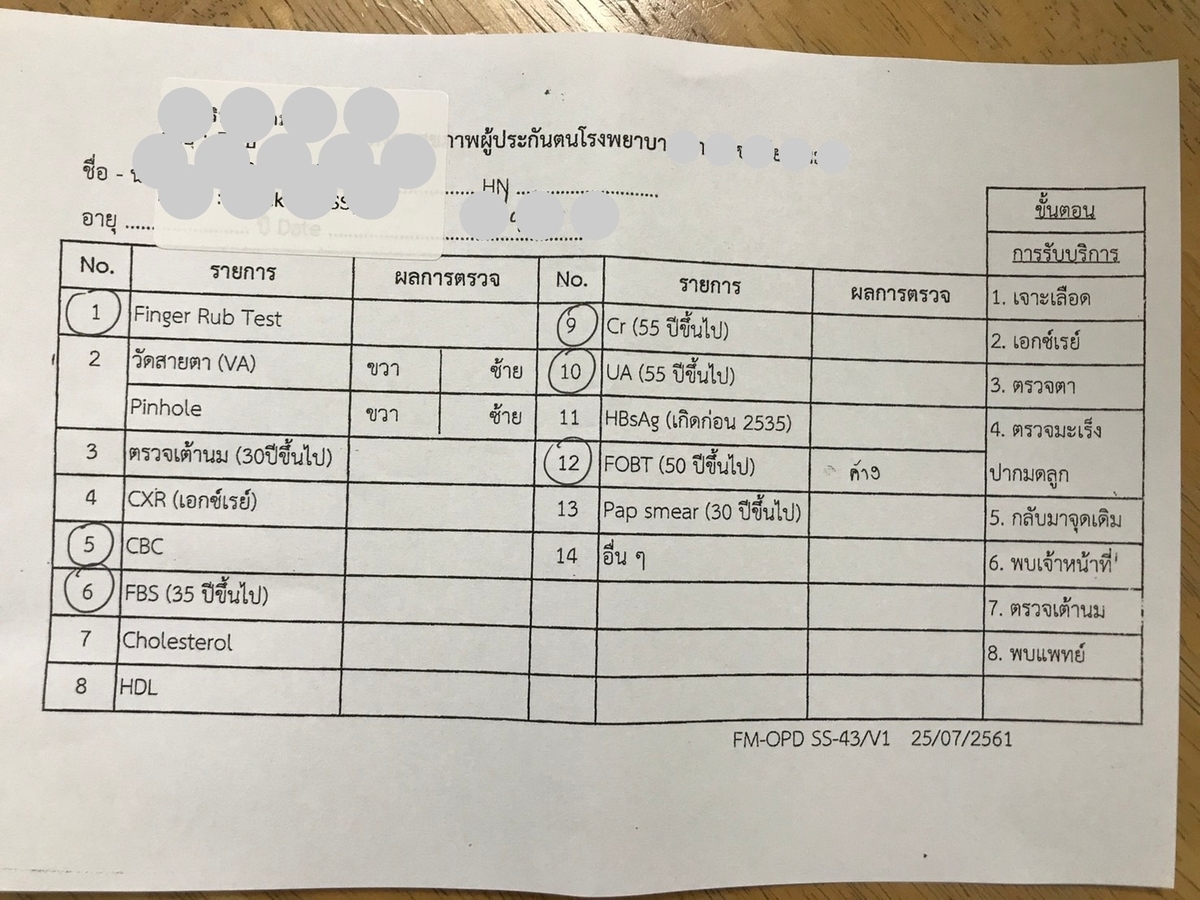 ผู้ประกันตนโรงพยาบา
ชื่อ - HN
อายุ ปี Date
No. รายการ ผลการตรวจ No. รายการ ผลการตรวจ
1 Finger Rub Test 9 Cr (55 ปีขึ้นไป)
2 วัดสายตา (VA) ขวา ซ้าย 10 UA (55 ปีขึ้นไป)
Pinhole ขวา ซ้าย 11 HBsAg (เกิดก่อน 2535)
3 ตรวจเต้านม (30ปีขึ้นไป) 12 FOBT (50 ปีขึ้นไป) ค้าง
4 CXR (เอกซ์เรย์) 13 Pap smear (30 ปีขึ้นไป)
5 CBC 14 อื่น ๆ
6 FBS (35 ปีขึ้นไป)
7 Cholesterol
8 HDL
ขั้นตอน
การรับบริการ
1. เจาะเลือด
2. เอกซ์เรย์
3. ตรวจตา
4. ตรวจมะเร็ง
ปากมดลูก
5. กลับมาจุดเดิม
6. พบเจ้าหน้าที่
7. ตรวจเต้านม
8. พบแพทย์
FM-OPD SS-43/V1 25/07/2561